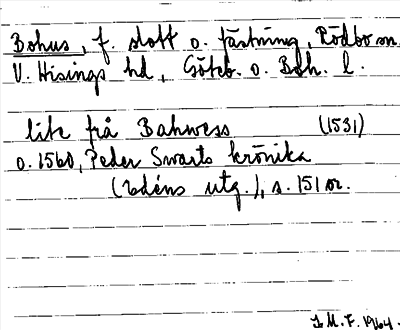 Bohus, f. slott o. fästning, Rödbo sn.
V. Hisings hd, Göteb. o. Boh. l.
litk från Bahwess (1531)
o. 1560, Peder Swarts krönika
(Edéns utg.), s. 151 m.
J. M. F. 1964.